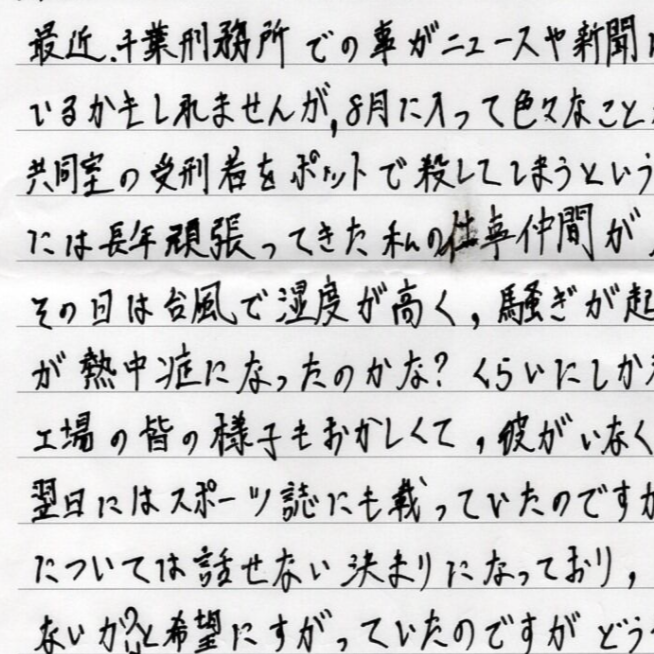 最近、千葉刑務所での事がニュースや新聞
いるかもしれませんが、8月に入って色々なこと
共同室の受刑者をポットで殺してしまうという
には長年頑張ってきた私の仕事仲間が
その日は台風で湿度が高く、騒ぎが起
が熱中症になったのかな?くらいにしか
工場の皆の様子もおかしくて、彼がいなく
翌日にはスポーツ誌にも載っていたのですが
については話せない決まりになっており、
ないか?と希望にすがっていたのですがどう